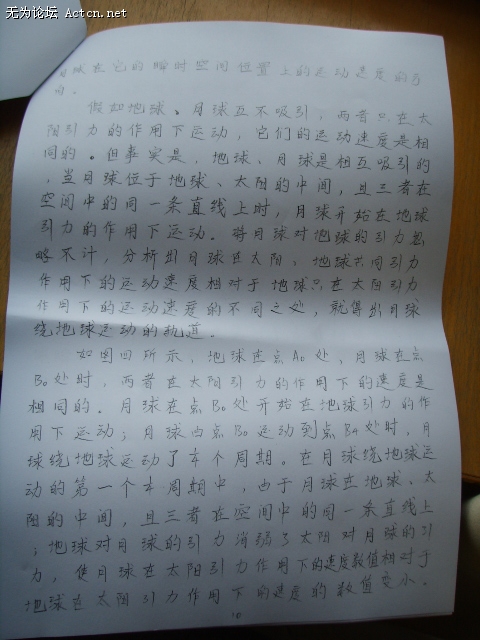 无为论坛 Actcn.net
月球在它的瞬时空间位置上的运动速度的方
向。
假如地球、月球互不吸引，两者只在太
阳引力的作用下运动，它们的运动速度是相
同的。但事实是，地球、月球是相互吸引的
，当月球位于地球、太阳的中间，且三者在
空间中的同一条直线上时，月球开始在地球
引力的作用下运动。将月球对地球的引力忽
略不计，分析出月球在太阳、地球共同引力
作用下的运动速度相对于地球只在太阳引力
作用下的运动速度的不同之处，就得出月球
绕地球运动的轨道。
如图四所示，地球在点A0处、月球在点
B0处时，两者在太阳引力的作用下的速度是
相同的。月球在点B0处开始在地球引力的作
用下运动；月球由点B0运动到点B4处时，月
球绕地球运动了个周期。在月球绕地球运
动的第一个周期中，由于月球在地球、太
阳的中间，且三者在空间中的同一条直线上
；地球对月球的引力消弱了太阳对月球的引
力，使月球在太阳引力作用下的速度数值相对于
地球在太阳引力作用下的速度的数值变小。